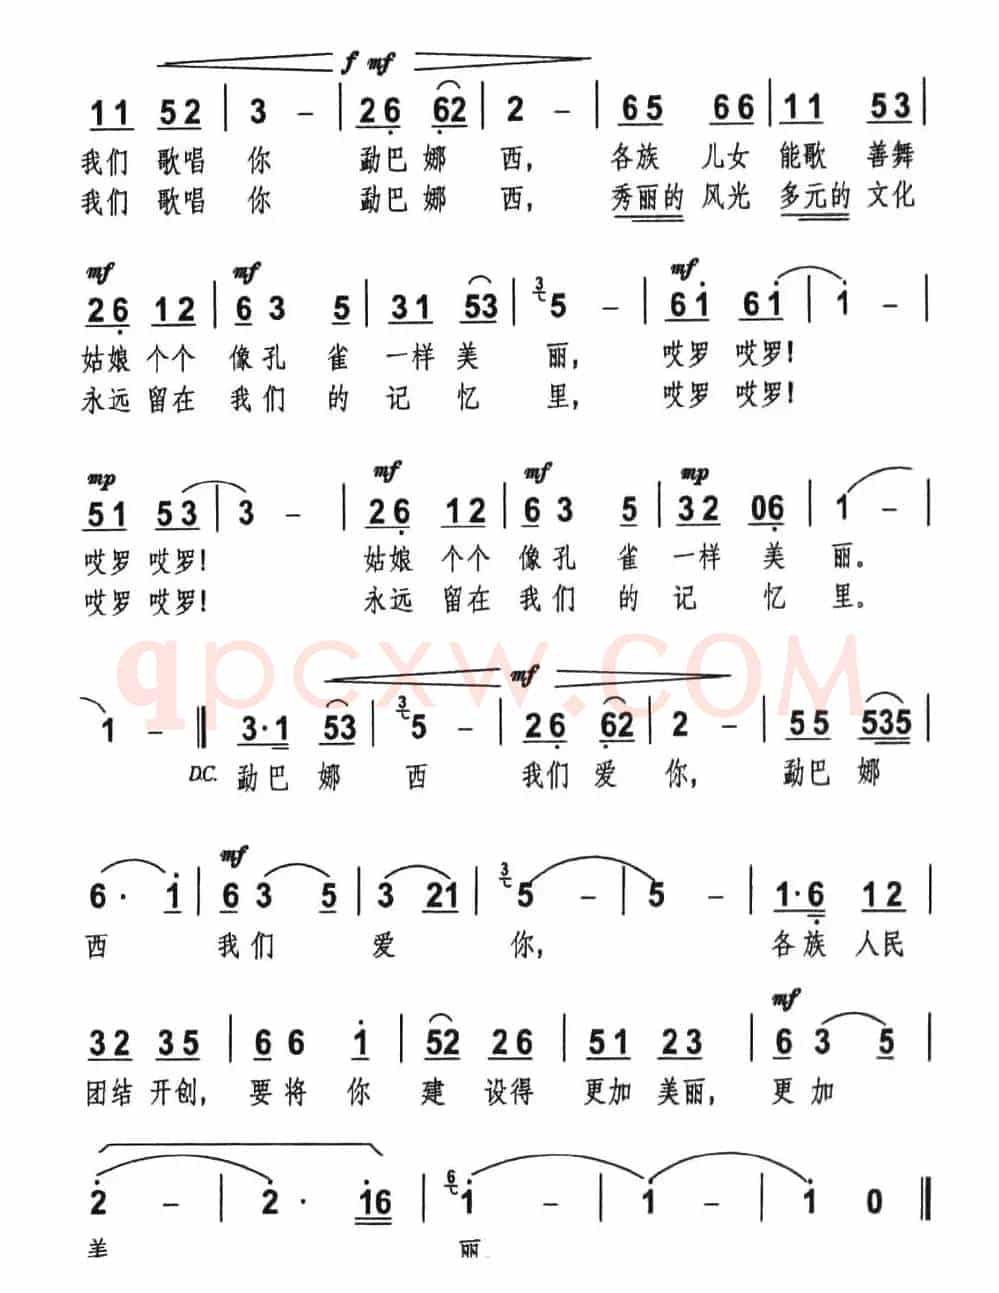 f mf
11 52 | 3 – | 26 62 | 2 – | 65 66 | 11 53 |
我们 歌唱 你 勐巴 娜 西, 各族 儿女 能歌 善舞
我们 歌唱 你 勐巴 娜 西, 秀丽的 风光 多元的 文化
mf mf mf
26 12 | 6 3 5 | 31 53 | 3 5 – | 61 61 | 1 – |
姑娘 个个 像孔 雀 一样 美 丽, 哎罗 哎罗!
永远 留在 我们 的 记 忆 里, 哎罗 哎罗!
mp mf mf mp
51 53 | 3 – | 26 12 | 6 3 5 | 32 06 | 1 – |
哎罗 哎罗! 姑娘 个个 像孔 雀 一样 美 丽。
哎罗 哎罗! 永远 留在 我们 的 记 忆 里。
qpcxw.COM
mf
1 – ‖ 3·1 53 | 3 5 – | 26 62 | 2 – | 55 535 |
D.C. 勐巴 娜 西 我们 爱 你, 勐巴 娜
mf
6· 1 | 6 3 5 | 3 21 | 3 5 – | 5 – | 1·6 12 |
西 我们 爱 你, 各族 人民
mf
32 35 | 66 1 | 52 26 | 51 23 | 6 3 5 |
团结 开创, 要将 你 建 设得 更加 美丽, 更加
2 – | 2· 16 | 6 1 – | 1 – | 1 0 ‖
丽